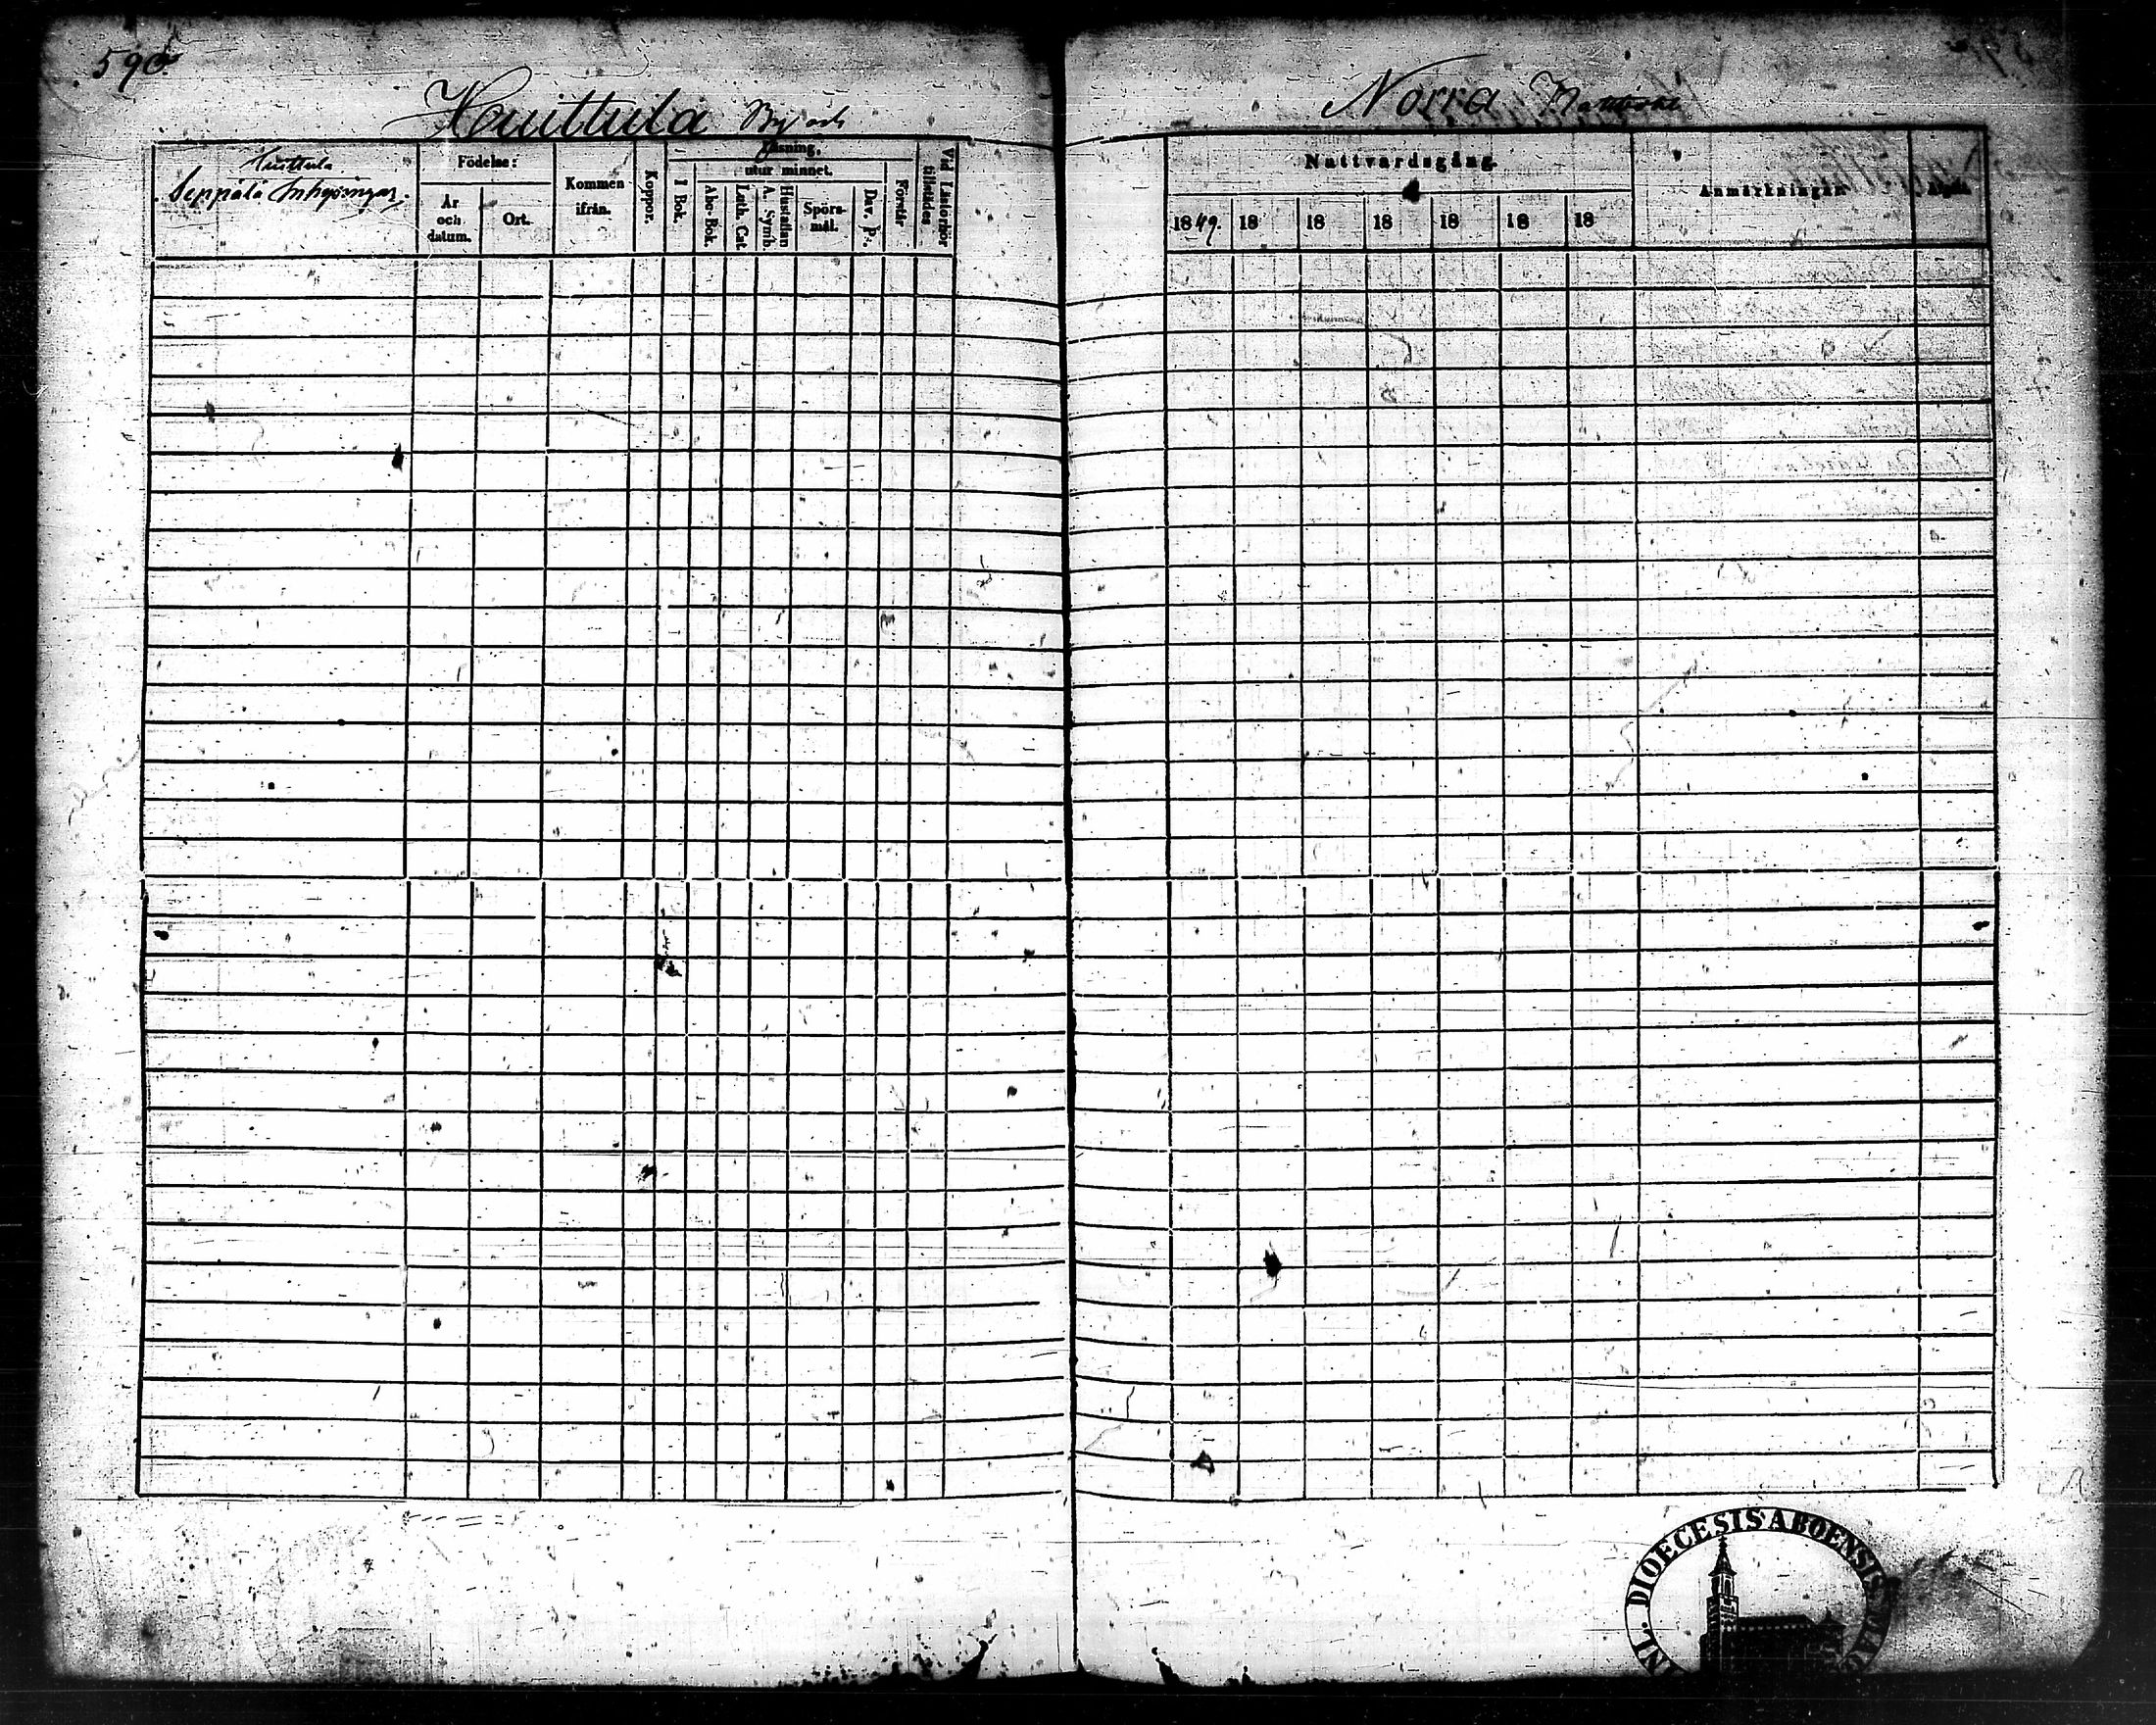 590
Huittula By och
Norra
Huittula
Seppälä Inhysingar.
Födelse:
År och datum.
Ort.
Kommen ifrån.
Koppor.
Läsning,
utur minnet.
I Bok.
Abc-Bok.
Luth. Cat.
A. Symb.
Hustaflan
Spörs-mål.
Dav. ps.
Förstår
Vid Läsförhör tillstädes
Nattvardsgång.
1849.
18
18
18
18
18
18
Anmärkningar
DIOECESIS ABOENSIS